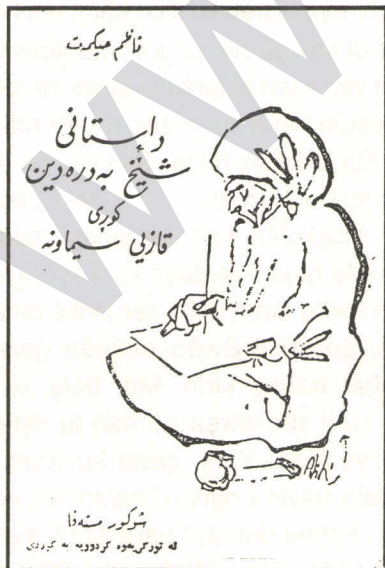 ناظم حیکمەت
داستانی
شێخ بەدرەدین
کوڕی
قازی سیماونە
شوکور مستەفا
لە تورکییەوە کردوویە بە کوردی